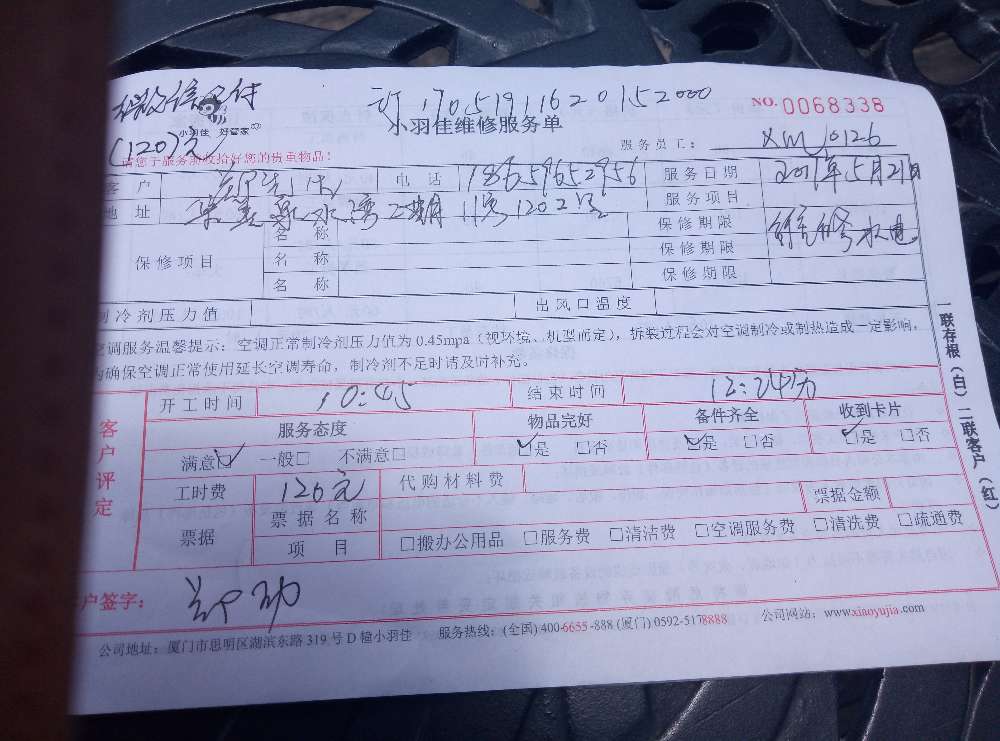 微信支付
订17051911620152000
NO.0068338
小羽佳 好管家
小羽佳维修服务单
(120)元
服务员工： XM10126
请您于服务前收拾好您的贵重物品！
客户 郑先生 电话 18659652956 服务日期 2017年5月21日
地址 二期11号1202室 服务项目 维修水电
保修项目 名称 保修期限
名称 保修期限
名称 保修期限
制冷剂压力值 出风口温度
空调服务温馨提示：空调正常制冷剂压力值为0.45mpa（视环境、机型而定），拆装过程会对空调制冷或制热造成一定影响，
为确保空调正常使用延长空调寿命，制冷剂不足时请及时补充。
一联存根（白）二联客户（红）
客户评定
开工时间 10:45 结束时间 12:24分
服务态度 物品完好 备件齐全 收到卡片
满意☑ 一般□ 不满意□ ☑是 □否 ☑是 □否 ☑是 □否
工时费 120元 代购材料费 票据金额
票据 票据名称
项目 □搬办公用品 □服务费 □清洁费 □空调服务费 □清洗费 □疏通费
客户签字：
公司地址：厦门市思明区湖滨东路319号D幢小羽佳 服务热线：(全国)400-6655-888 (厦门)0592-5178888 公司网站：www.xiaoyujia.com